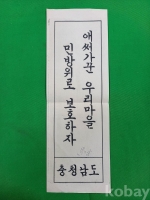 애써가꾼 우리마을
민방위로 보호하자
충청남도
kobay